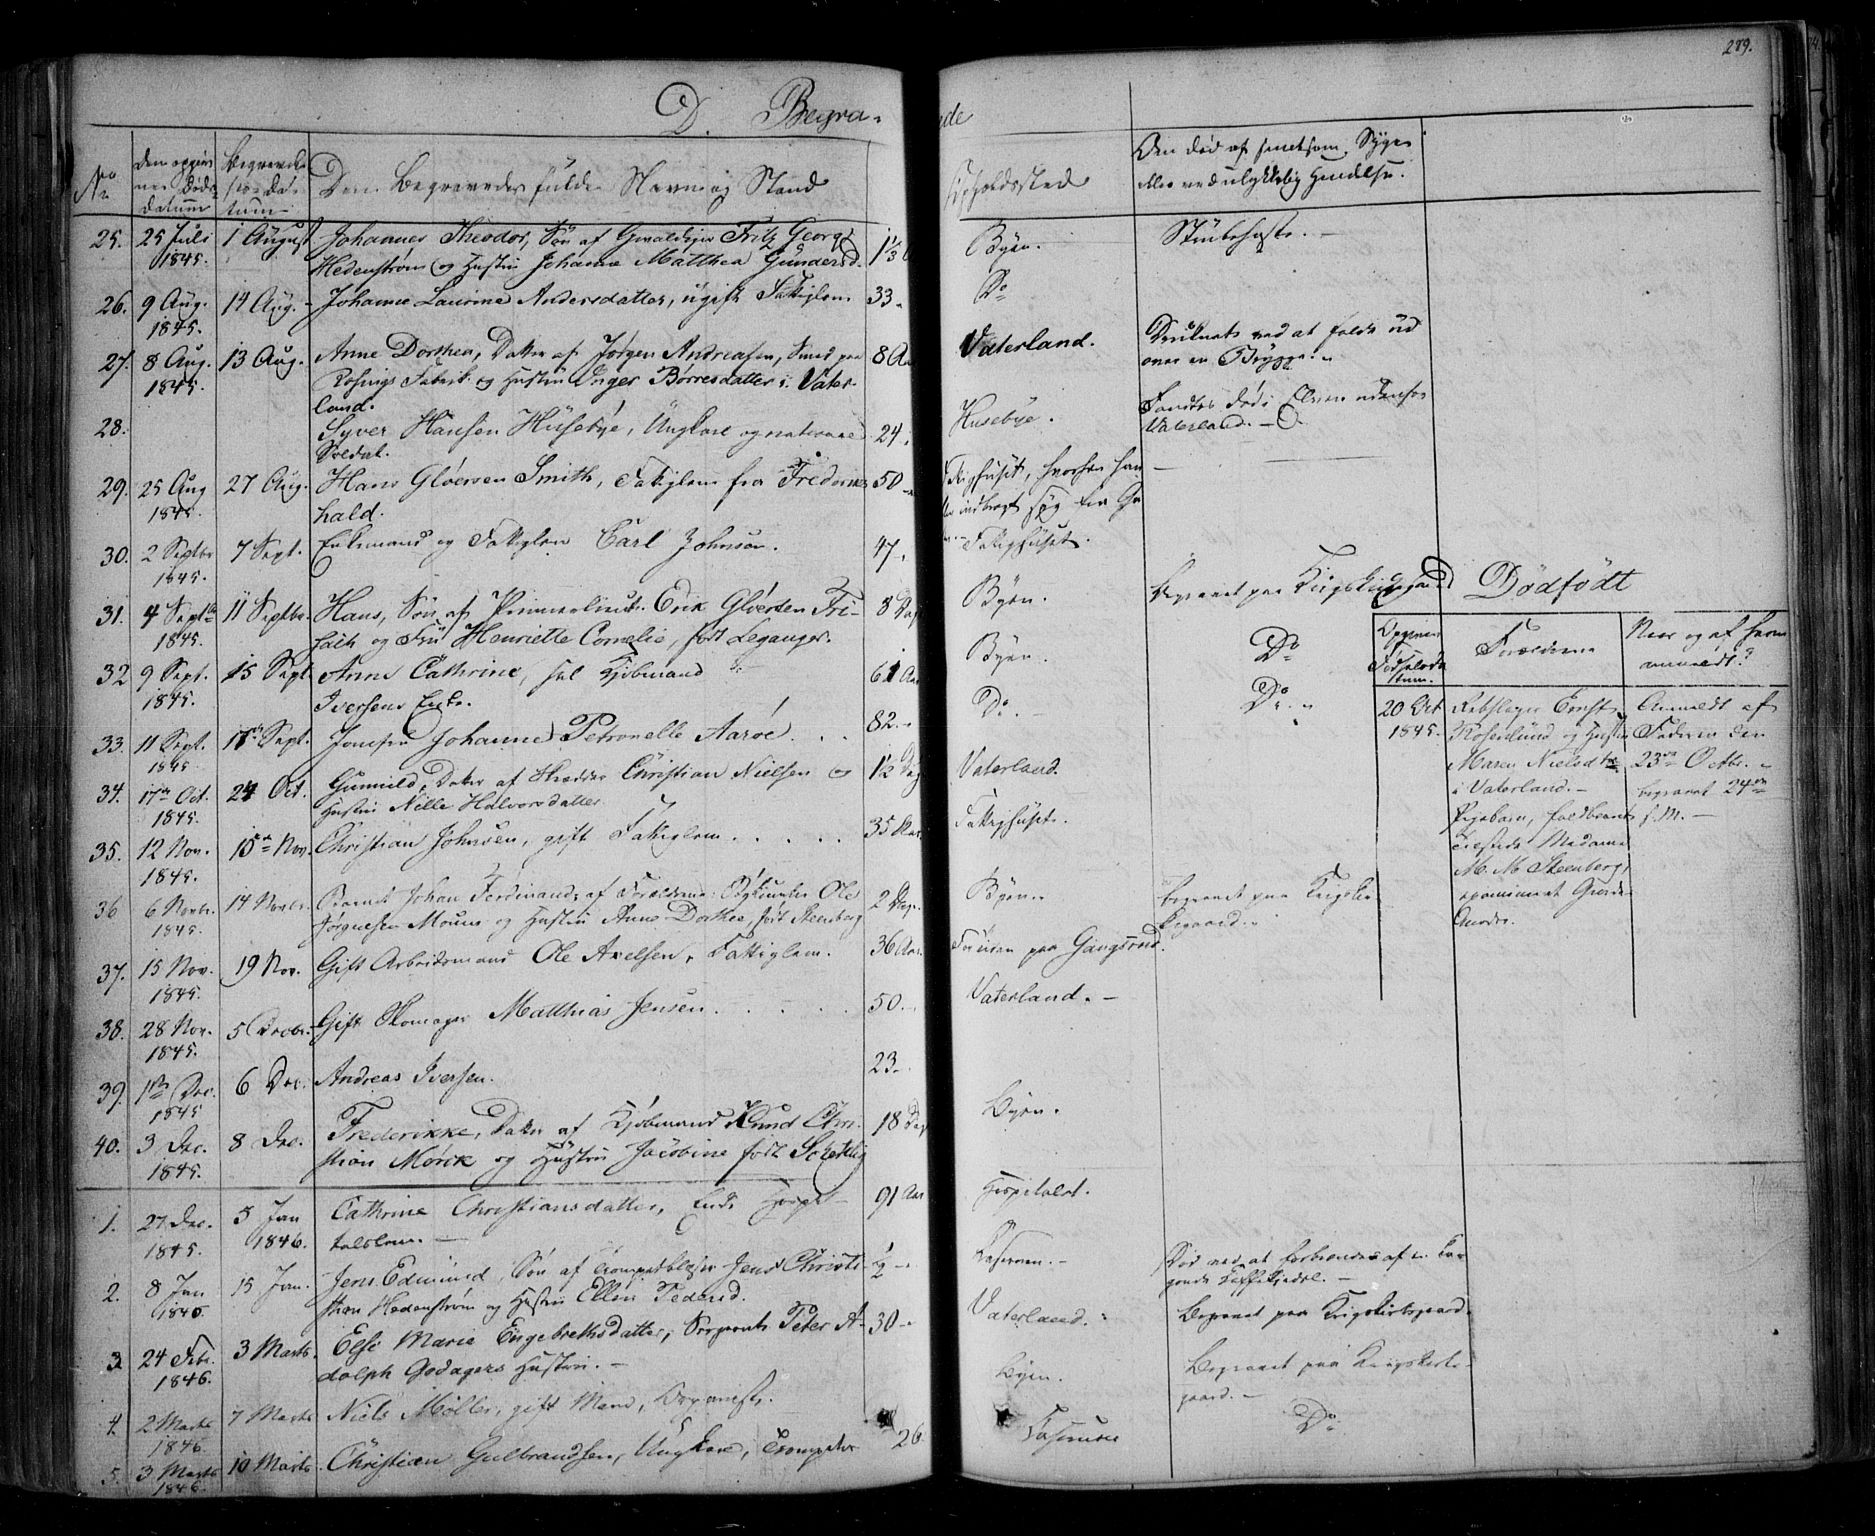 289.
D. Begra-
de
No
Den opgivne Døds-datum
Begravelses-Datum
Den Begravedes fulde Navn og Stand
Opholdssted
Den død af smitsom Syge
eller ved ulykkelig Hendelse.
25. 25 Juli 1845. 1 August Johannes Theodor, Søn af Gevaldiger Fritz Georg
Hedenstrøm og Hustru Johanne Matthea Gundersd. 1 1/3 Byen. Strubehoste.
26. 9 Aug. 1845. 14 Aug. Johanne Laurine Andersdatter, ugift Fattiglem 33. Do
27. 8 Aug. 1845. 13 Aug. Anne Dorthea, Datter af Jørgen Andreasen, Smed paa
Rosings Fabrik og Hustru Inger Børresdatter i Vater-
land. 8 Aar Vaterland. Druknet ved at falde ud
over en Brygge.
28. Syver Hansen Husebye, Ungkarl og national
Soldat. 24. Husebye. Fandtes død i Elven udenfor
Vaterland.
29. 25 Aug 1845. 27 Aug. Hans Gløersen Smith, Fattiglem fra Frederiks-
hald. 50 Fattighuset, hvorhen han
indbragt syg fra
30. 2 Septbr 1845. 7 Sept. Enkemand og Fattiglem Carl Johnsen. 47. Fattighuset.
31. 4 Septbr 1845. 11 Septbr. Hans, Søn af Premierlieut. Erik Gløersen Fri-
sach og Fru Henriette Cornelie, født Leganger. 8 Dage Byen. Begravet paa Krigskirkegaard
32 9 Sept. 1845. 15 Sept. Anne Cathrine, sal Kjøbmand
Iversens Enke. 61 Aar Byen. Do
33. 11 Sept. 1845. 17 Sept. Jomfru Johanne Petronelle Aarøe . . . 82. Do. Do.
34. 17 Oct. 1845. 24 Oct. Gunnild, Datter af Skrædder Christian Nielsen og
Hustru Nille Halvorsdatter. 1 1/2 Dag Vaterland.
35. 12 Nov. 1845. 15 Nov. Christian Johnsen, gift Fattiglem . . . . . 35 Aar. Fattighuset.
36 6 Novbr. 1845. 14 Novbr. Barnet Johan Ferdinand, af Forældrene Ole
Jørgensen Moum og Hustru Anne Dorthea, født Steenberg 2 Dage. Byen. Begravet paa Krigskir-
kegaard.
37. 15 Nov. 1845. 19 Nov. Gift Arbeidsmand Ole Axelsen, Fattiglem. 36 Aar. paa Gangsrød.
38. 28 Nov. 1845. 5 Decbr. Gift Skomager Matthias Jensen . . . . . 50. Vaterland.
39. 1 Dec. 1845 6 Dec. Andreas Iversen. 23.
40. 3 Dec. 1845. 8 Dec. Frederikke, Datter af Kjøbmand Knud Chri-
stian Mørck og Hustru Jacobine født Schetlig 18 Dage Byen.
1. 27 Dec. 1845. 5 Jan 1846. Cathrine Christiansdatter, Enke Hospi-
talslem. 91 Aar Hospitalet.
2. 8 Jan 1846. 15 Jan. Jens Edmund, Søn af Trompetblæser Jens Christi-
stian Hedenstrøm og Hustru Ellen Pedersd. 1/2 Casernen. Død ved at forbrændes af en ko-
gende Kaffekjedel.
3 24 Febr. 1846. 3 Marts. Else Marie Engebrethsdatter, Sergeant Peter A-
dolph Godagers Hustru. 30 Vaterland. Begravet paa Krigskirkegaard.
4 2 Marts 1846 7 Marts Niels Møller, gift Mand, Organist. Byen. Begravet paa Krigskirke-
gaard.
5. 3 Marts 1846. 10 Marts. Christian Gulbrandsen, Ungkarl, Trompeter 26 Casernen Do
Dødfødt
Opgiven Fødselsdatum.
Forældrene
Naar og af hvem
anmeldt?
20 Oct 1845.
Rebslager Ernst
Rosenlund og Hustru
Maren Nielsdtr
i Vaterland.
Pigebarn,
Madame
M. M. Steenberg,
examineret Gjorde-
moder.
Anmeldt af
Faderen den
23de Octbr.
begravet 24de
s. M.